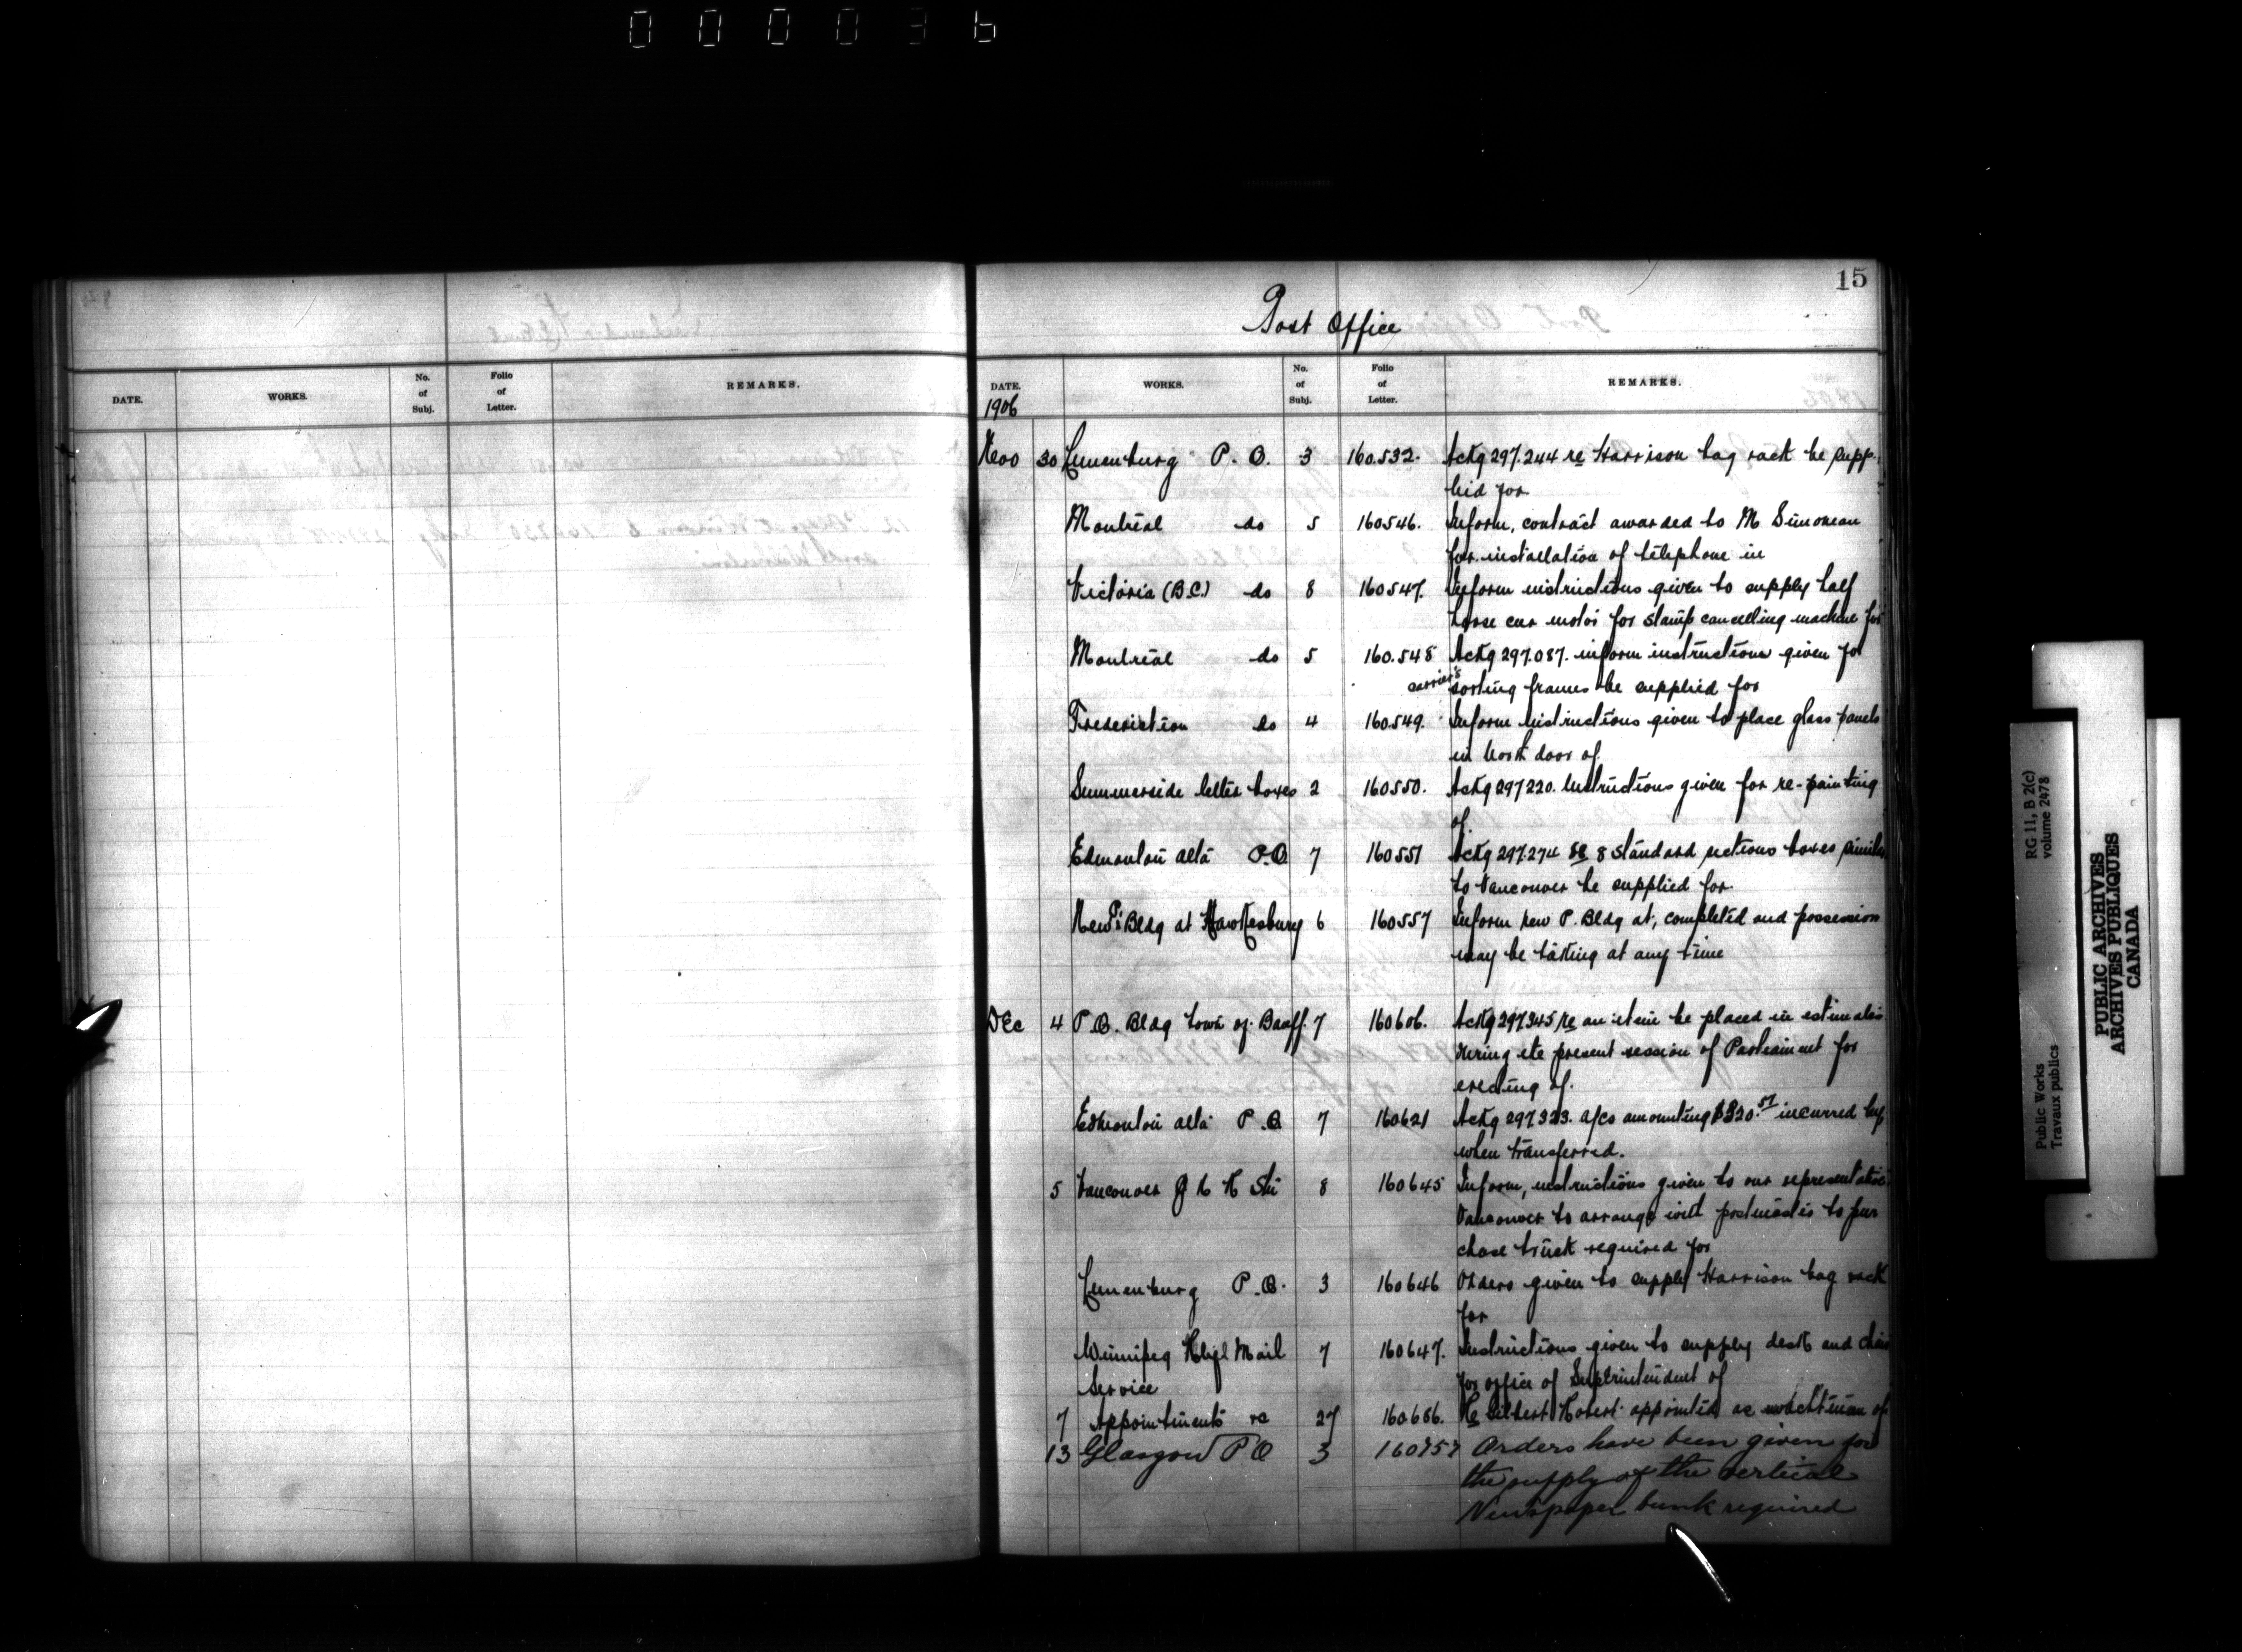 000036
15
Post Office
DATE. WORKS. No. of Subj. Folio of Letter. REMARKS.
DATE. WORKS. No. of Subj. Folio of Letter. REMARKS.
1906
Nov 30 Lunenburg P. O. 3 160.532. Ackg 297.244 re Harrison bag rack be supp-
lied for
Montreal do 5 160546. Inform, contract awarded to M Simoneau
for installation of telephone in
Victoria (B.C.) do 8 160547. Inform instructions given to supply half
horse motor for stamp cancelling machine for
Montreal do 5 160.548 Ackg 297.087. inform instructions given for
carrier's sorting frames be supplied for
Fredericton do 4 160.549. Inform instructions given to place glass panels
in door of
Summerside letter boxes 2 160550. Ackg 297220. Instructions given for re-painting
of
Edmonton alta P.O. 7 160551 Ackg 297.274 re 8 standard sections boxes similar
to Vancouver be supplied for.
New P. Bldg at Hawkesbury 6 160557 Inform new P. Bldg at, completed and possession
may be taking at any time
Dec 4 P.O. Bldg town of Banff. 7 160606. Ackg 297345 re an item be placed in estimates
during the present session of Parliament for
erecting of.
Edmonton alta P.O 7 160621 Ackg 297323. a/cs amounting $320.57 incurred by
when transferred.
5 Vancouver 8 160645 Inform, instructions given to our representative
Vancouver to arrange with postmaster to pur
chase truck required for
Lunenburg P.O. 3 160646 Orders given to supply Harrison bag rack
for
Winnipeg Mail 7 160647. Instructions given to supply desk and chair
Service for office of Superintendent of
7 Appointments re 27 160686. Re Gilbert appointed as watchman of
13 Glasgow P O 3 160757 Orders have been given for
the supply of the vertical
Newspaper bunk required
RG 11, B 2(c)
volume 2478
Public Works
Travaux publics
PUBLIC ARCHIVES
ARCHIVES PUBLIQUES
CANADA